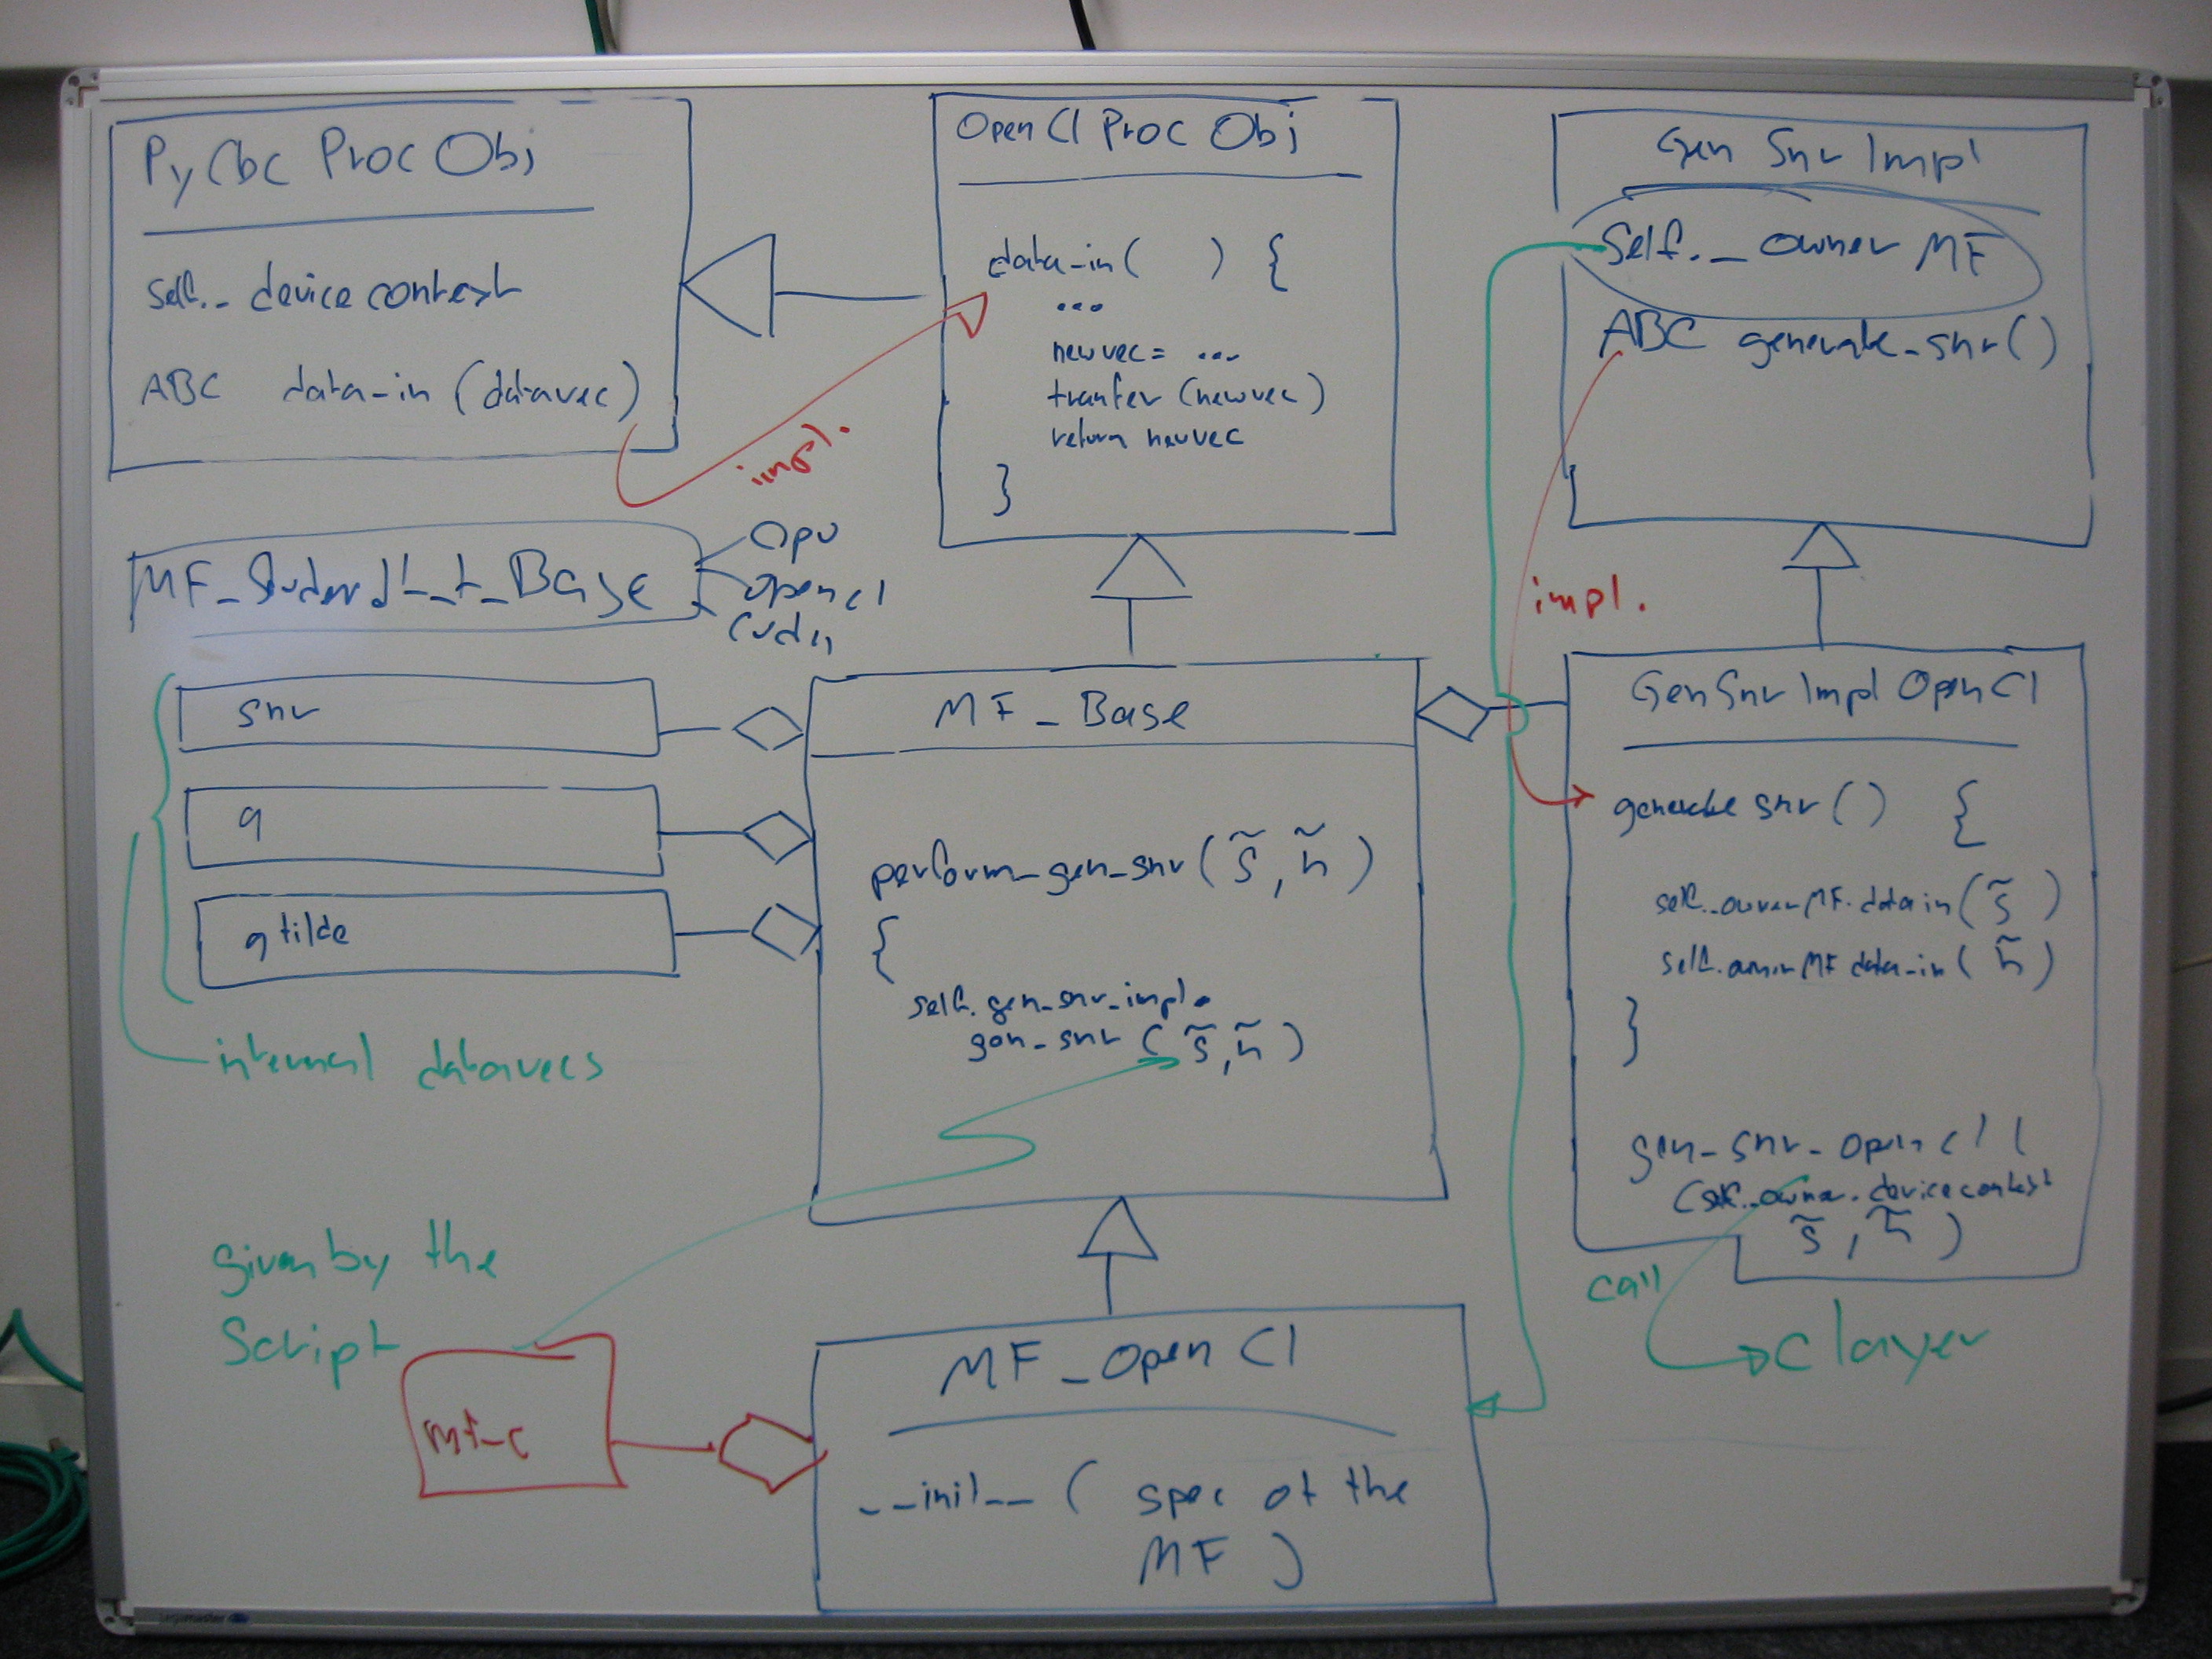 PyCbc Proc Obj
self._ device context
ABC data-in (datavec)
impl.
Open Cl Proc Obj
data-in( ) {
...
newvec= ...
tranfer (newvec)
return newvec
}
Gen Snr Impl
Self._ owner MF
ABC generate_snr()
impl.
Base
Cpu
opencl
Cuda
snr
q
q tilde
internal datavecs
MF_Base
perform_gen_snr(s̃, h̃)
{
self.gen_snr_impl.
gen_snr (s̃, h̃)
Gen Snr Impl Open Cl
generate snr() {
self._ownerMF.data in(s̃)
self.ownerMF data-in(h̃)
}
gen_snr_opencl (
(self._owner.devicecontext
s̃, h̃)
call
C layer
given by the
Script
mf_c
MF_Open Cl
__init__ ( spec of the
MF )